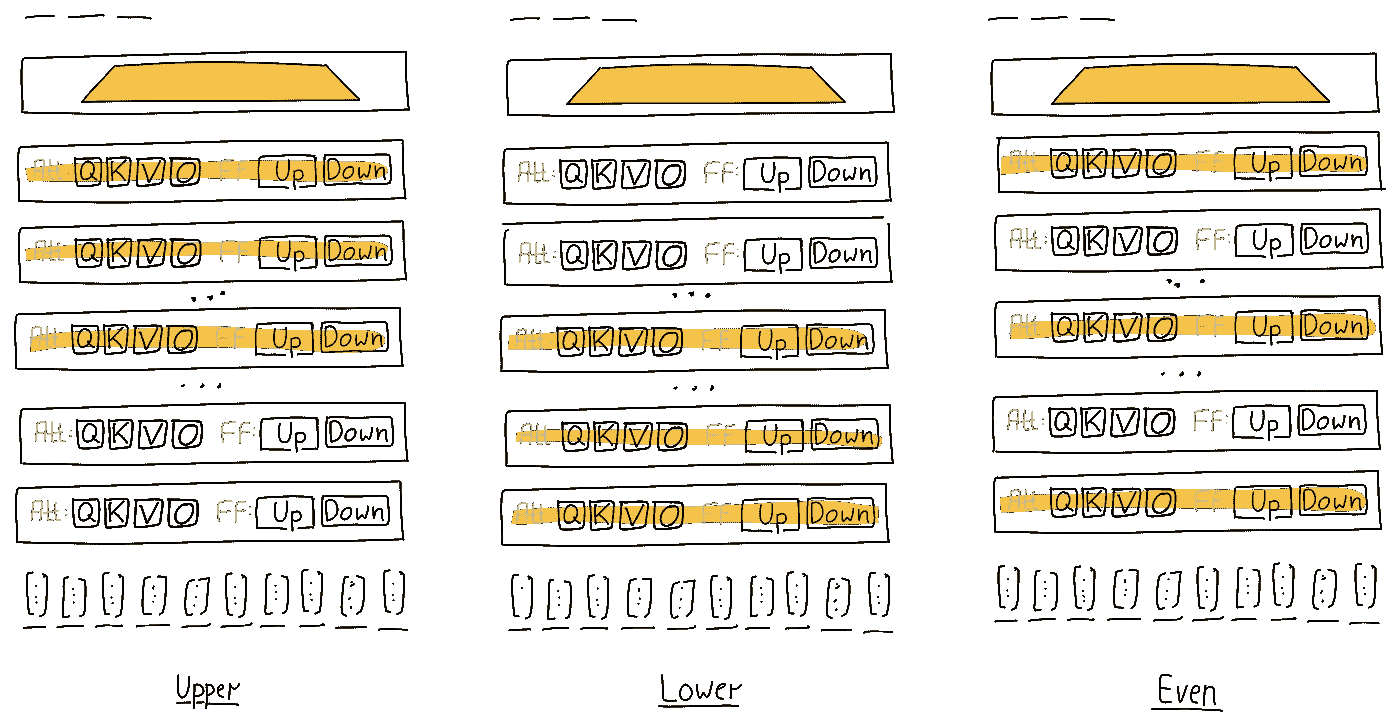 Att: Q K V O FF: Up Down
Att: Q K V O FF: Up Down
...
Att: Q K V O FF: Up Down
...
Att: Q K V O FF: Up Down
Att: Q K V O FF: Up Down
Upper
Att: Q K V O FF: Up Down
Att: Q K V O FF: Up Down
...
Att: Q K V O FF: Up Down
...
Att: Q K V O FF: Up Down
Att: Q K V O FF: Up Down
Lower
Att: Q K V O FF: Up Down
Att: Q K V O FF: Up Down
...
Att: Q K V O FF: Up Down
...
Att: Q K V O FF: Up Down
Att: Q K V O FF: Up Down
Even